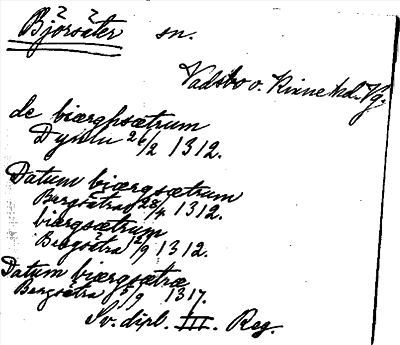 Björsäter sn.
Vadsbo o. Kinne hd. Vg.
de biærghsætrum
Dynnu 26/2 1312.
Datum biærgsætrum
Bergsätra 28/4 1312.
biærgsætrum
Bergsätra 12/9 1312.
Datum biærgsætra
Bergsätra 5/9 1317.
Sv. dipl. III. Reg.